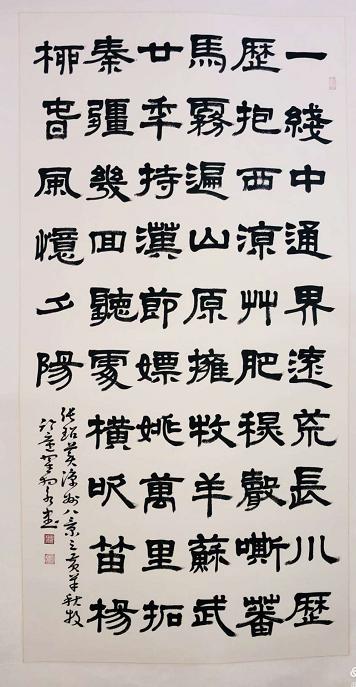 一綫中通界遠荒長川歷
歷抱西涼艸肥秋聲嘶蕃
馬霧遍山原擁牧羊蘇武
廿年持漢節嫖姚萬里拓
秦疆幾回聽處橫吹笛楊
柳春風憶夕陽
張玿美涼州八景之黃羊秋牧